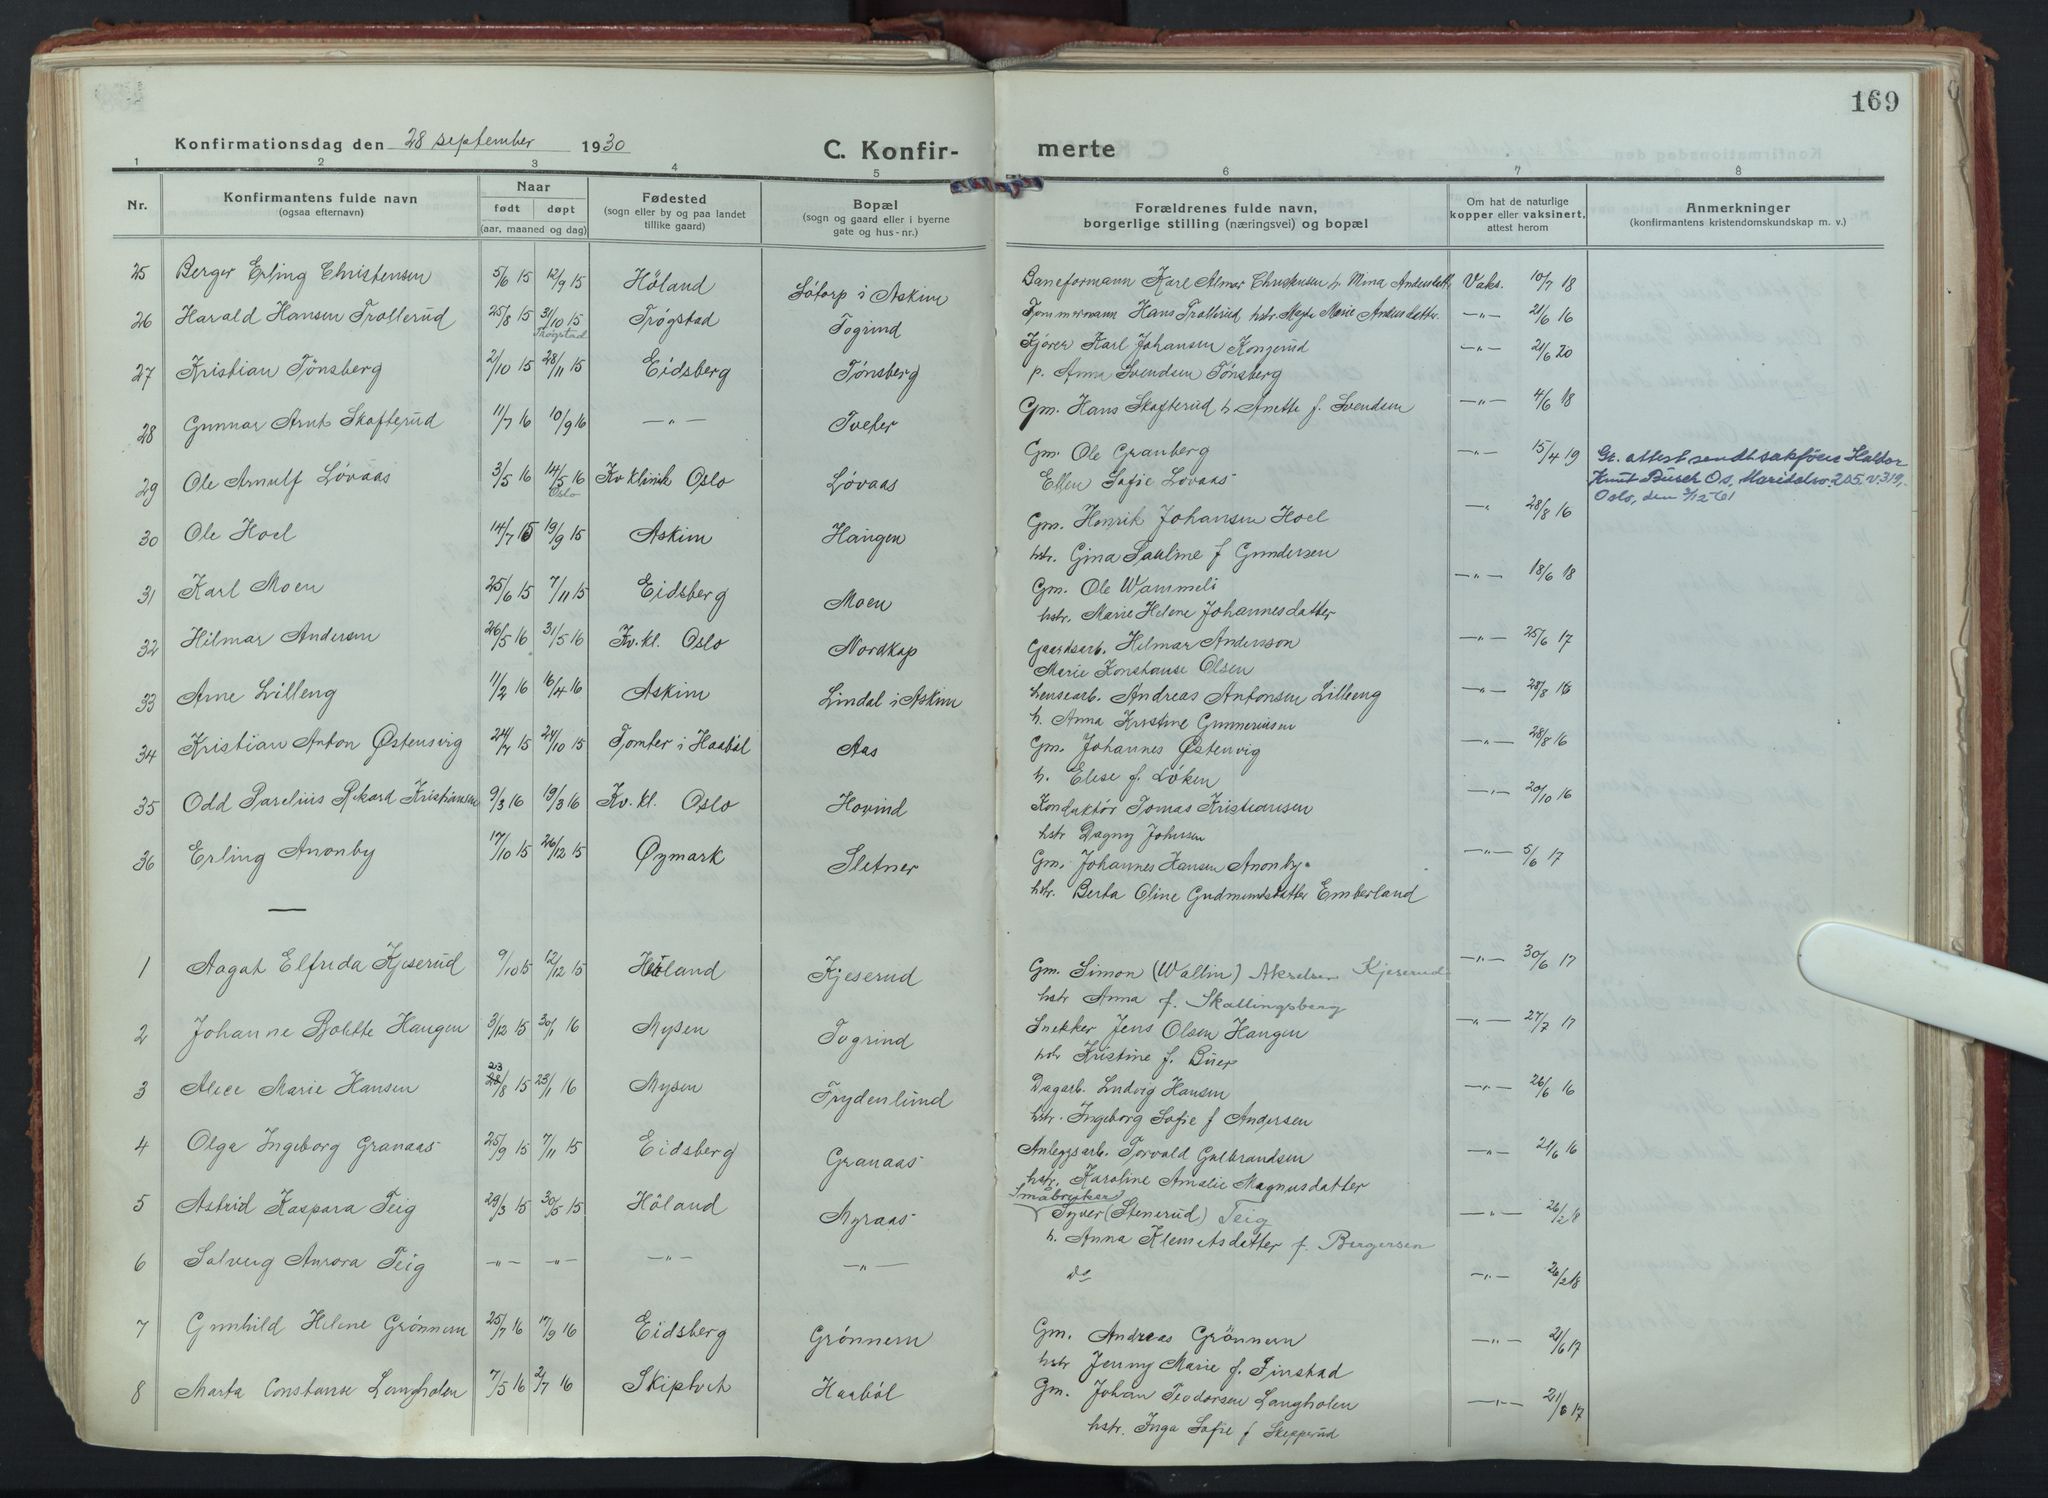 169
Konfirmationsdag den 28 september 1930
C. Konfir- merte
1 2 3 4 5 6 7 8
Nr.
Konfirmantens fulde navn
(ogsaa efternavn)
Naar
født døpt
(aar, maaned og dag)
Fødested
(sogn eller by og paa landet
tillike gaard)
Bopæl
(sogn og gaard eller i byerne
gate og hus-nr.)
Forældrenes fulde navn,
borgerlige stilling (næringsvei) og bopæl
Om hat de naturlige
kopper eller vaksinert,
attest herom
Anmerkninger
(konfirmantens kristendomskundskap m. v.)
25 Berger Erling Christensen 5/6 15 12/9 15 Höland Lötorp i Askim Baneformann Karl Almar Christensen h Mina Andersdttr Vaks. 10/7 18
26 Harald Hansen Trollerud 25/8 15 31/10 15 Trögstad Trøgstad Togrind Tømmermann Hans Trollerud hstr. Marie Andersdatter —"— 21/6 16
27 Kristian Tönsberg 2/10 15 28/11 15 Eidsberg Tønsberg Kjører Karl Johansen Kongerud —"— 21/6 20
p. Anna Svendsen Tønsberg
28 Gunnar Arnt Skofterud 11/7 16 10/9 16 —"— Tveter Gm. Hans Skofterud h. Anette f. Svendsen —"— 4/6 18
29 Ole Arnulf Løvaas 3/5 16 14/5 16 Oslo Kv klinik Oslo Løvaas Gm. Ole Granberg —"— 15/4 19 attest sendt sakfører Haldor
Ellen Sofie Løvaas Knut Busch Os, 205. v. 319,
Oslo, den 2/12 61
30 Ole Hoel 14/7 15 19/9 15 Askim Haugen Gm. Henrik Johansen Hoel —"— 28/8 16
hstr. Gina Pauline f Gundersen
31 Karl Moen 25/6 15 7/11 15 Eidsberg Moen Gm. Ole Wammeli —"— 18/6 18
hstr. Marie Helene Johannesdatter
32 Hilmar Andersen 26/5 16 31/5 16 Kv. kl. Oslo Nordkap Gaardsarb. Hilmar Andersson —"— 25/6 17
Marie Konstanse Olsen
33 Arne Lilleng 11/2 16 16/4 16 Askim Lindal i Askim Andreas Antonsen Lilleng —"— 28/8 16
h. Anna Kristine Gunneriusen
34 Kristian Anton Østensvig 24/7 15 24/10 15 Tomter i Haaböl Aas Gm. Johannes Østenvig —"— 28/8 16
h. Elese f. Löken
35 Odd Parelius Rikard Kristiansen 9/3 16 19/3 16 Kv. kl. Oslo Hovind Konduktör Tomas Kristiansen —"— 20/10 16
hstr Dagny Johnsen
36 Erling Anonby 17/10 15 26/12 15 Øymark Sletner Gm. Johannes Hansen Anonby. —"— 5/6 17
hstr. Berta Oline Gudmundsdatter Emberland
—
1 Aagot Elfrida Kjeserud 9/10 15 12/12 15 Höland Kjeserud Gm. Simon (Wallin) Akselsen Kjeserud —"— 30/6 17
hstr Anna f. Skallingsberg
2 Johanne Bolette Haugen 3/12 15 30/1 16 Mysen Togrind Snekker Jens Olsen Haugen —"— 27/7 17
hstr Kristine f. Buer
3 Alice Marie Hansen 23 28/8 15 23/1 16 Mysen Frydenlund Dagarb. Ludvig Hansen —"— 26/6 16
hstr. Ingeborg Sofie f Andersen
4 Olga Ingeborg Granaas 25/9 15 7/11 15 Eidsberg Granaas Anleggsarb. Torvald Gulbrandsen —"— 21/6 16
hstr. Karoline Amalie Magnusdatter
5 Astrid Kaspara Teig 29/3 15 30/5 15 Höland Myraas Småbruker
Syver (Stenerud) Teig —"— 26/2 18
h. Anna Klemetsdatter f. Bergersen
6 Solveig Aurora Teig —"— —"— —"— —"— do —"— 26/2 18
7 Gunhild Helene Grönnern 25/7 16 17/9 16 Eidsberg Grönnern Gm. Andreas Grönnern —"— 21/6 17
hstr Jenny Marie f. Finstad
8 Marta Constanse Langholen 7/5 16 2/7 16 Skiptvet Haaböl Gm. Johan Teodorsen Langholen —"— 21/6 17
hstr. Inga Sofie f Skepperud